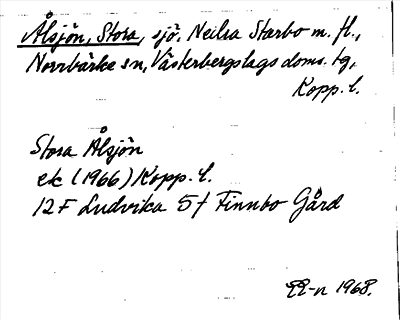 Ålsjön, Stora, sjö. Nedra Starbo m. fl.,
Norrbärke sn, Västerbergslags doms. tg,
Kopp. l.
Stora Ålsjön
ek (1966) Kopp. l.
12 F Ludvika 5 f Finnbo Gård
1968.